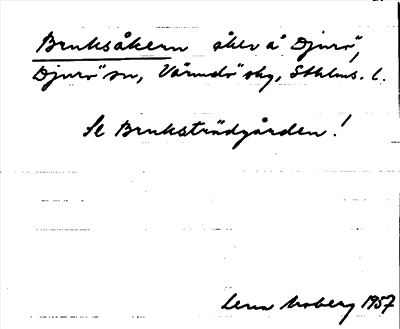 Bruksåkern åker å Djurö,
Djurö sn, Värmdö skg, Sthlms. l.
Se Bruksträdgården!
Lena Moberg 1957